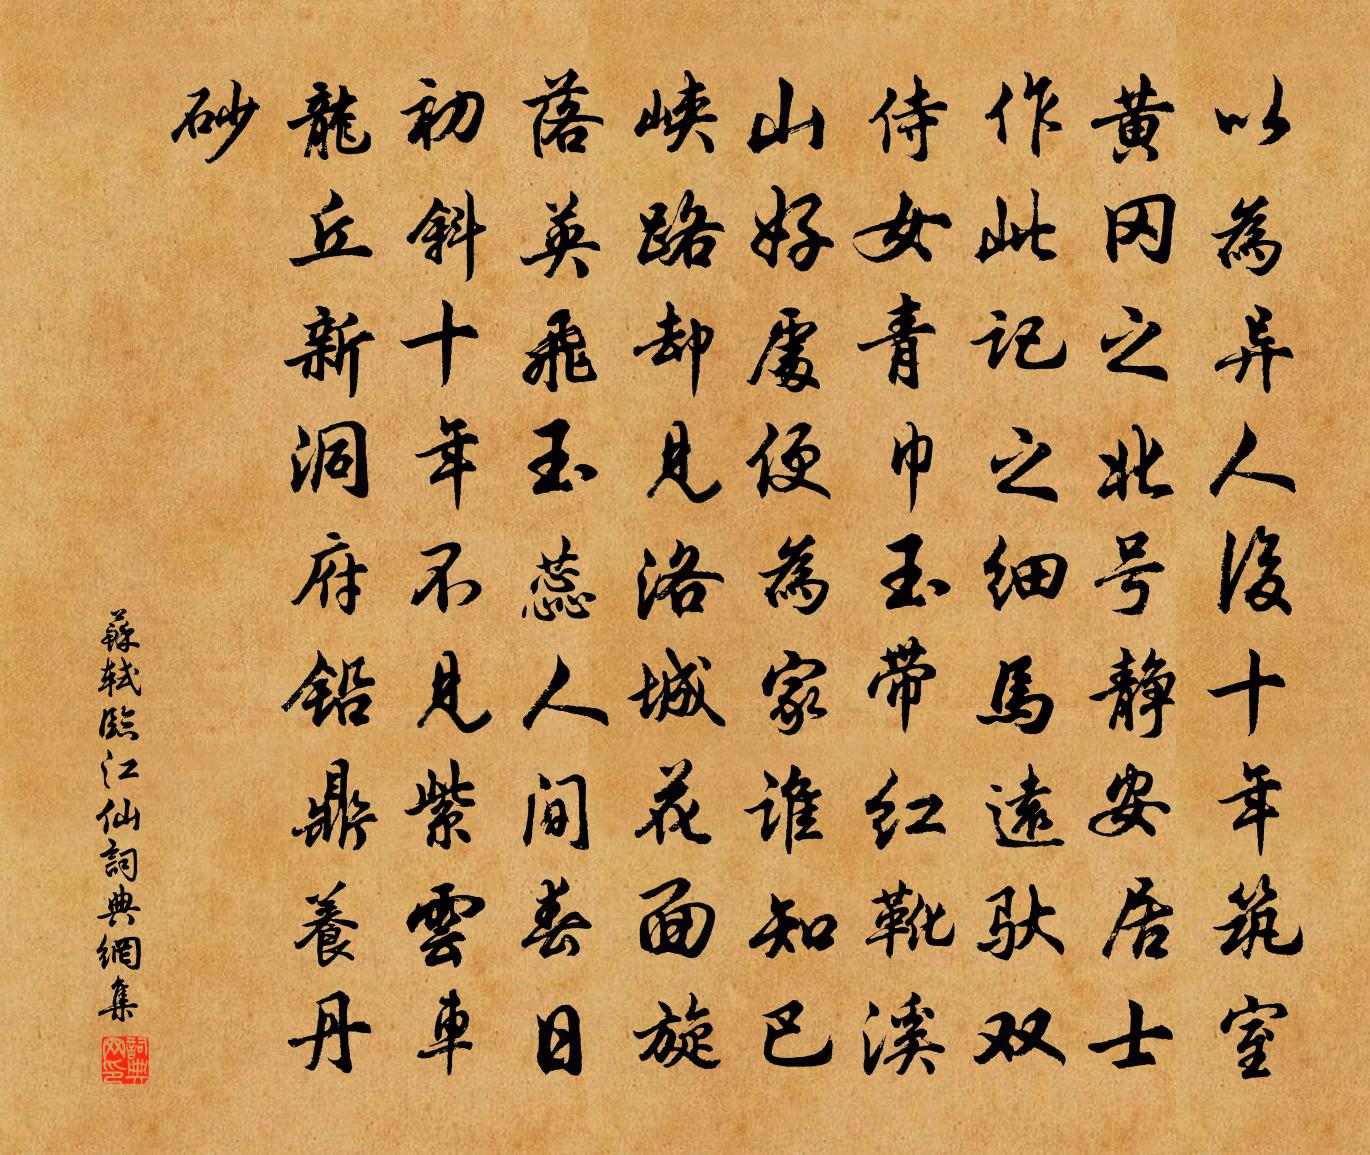 以為异人後十年筑室
黄冈之北号静安居士
作此记之细馬遠驮双
侍女青巾玉带红靴溪
山好處便為家谁知巴
峡路却見洛城花面旋
落英飛玉蕊人间春日
初斜十年不見紫雲車
龍丘新洞府铅鼎養丹
砂
蘇軾臨江仙詞典網集
詞典网印